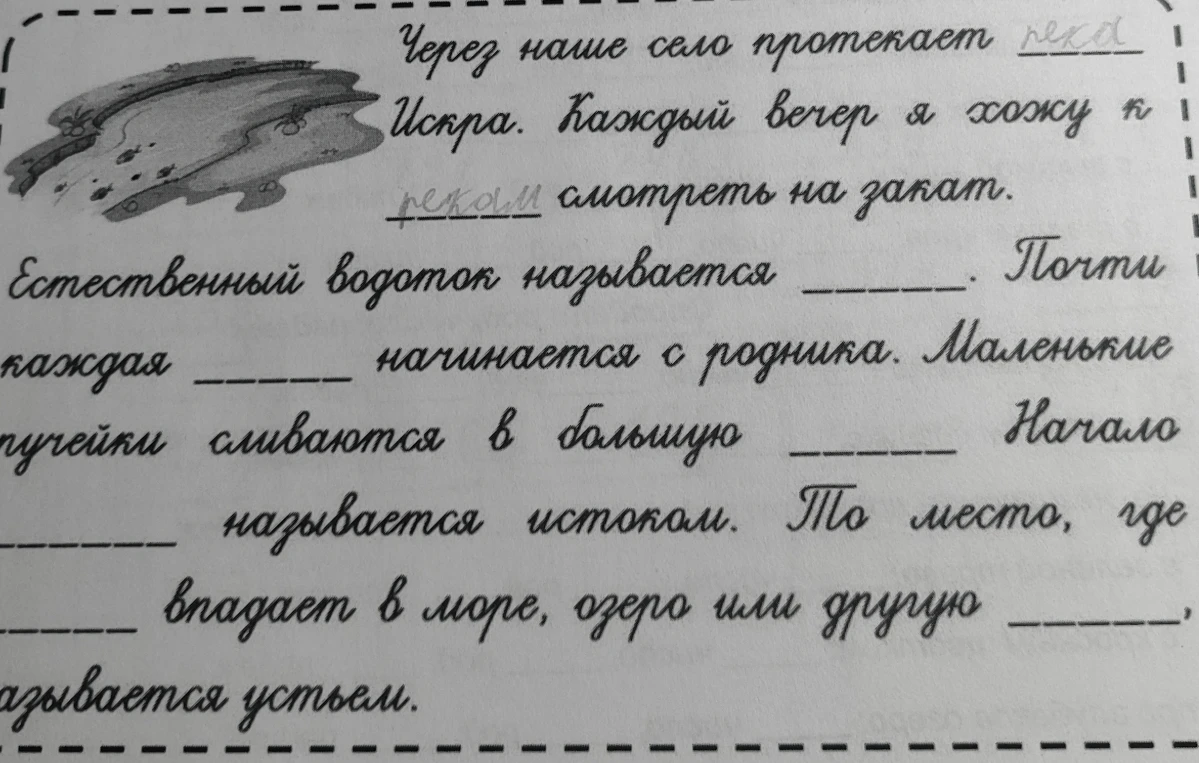 Через наше село протекает река
Искра. Каждый вечер я хожу к
рекам смотреть на закат.
Естественный водоток называется _____. Почти
каждая _____ начинается с родника. Маленькие
ручейки сливаются в большую _____ Начало
______ называется истоком. То место, где
_____ впадает в море, озеро или другую _____,
азывается устьем.